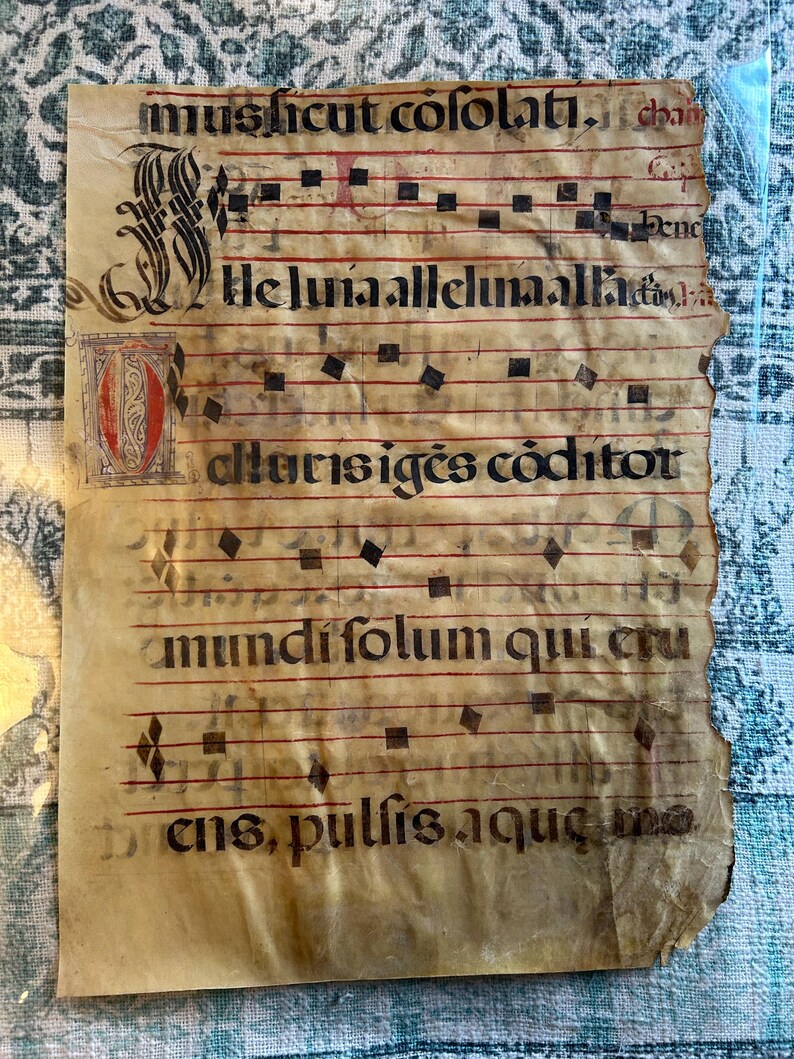 mus ſicut cõſolati.
Alleluia alleluia
Telluris igẽs cõditor
mundi ſolum qui eru
ens, pulſis aquę mo